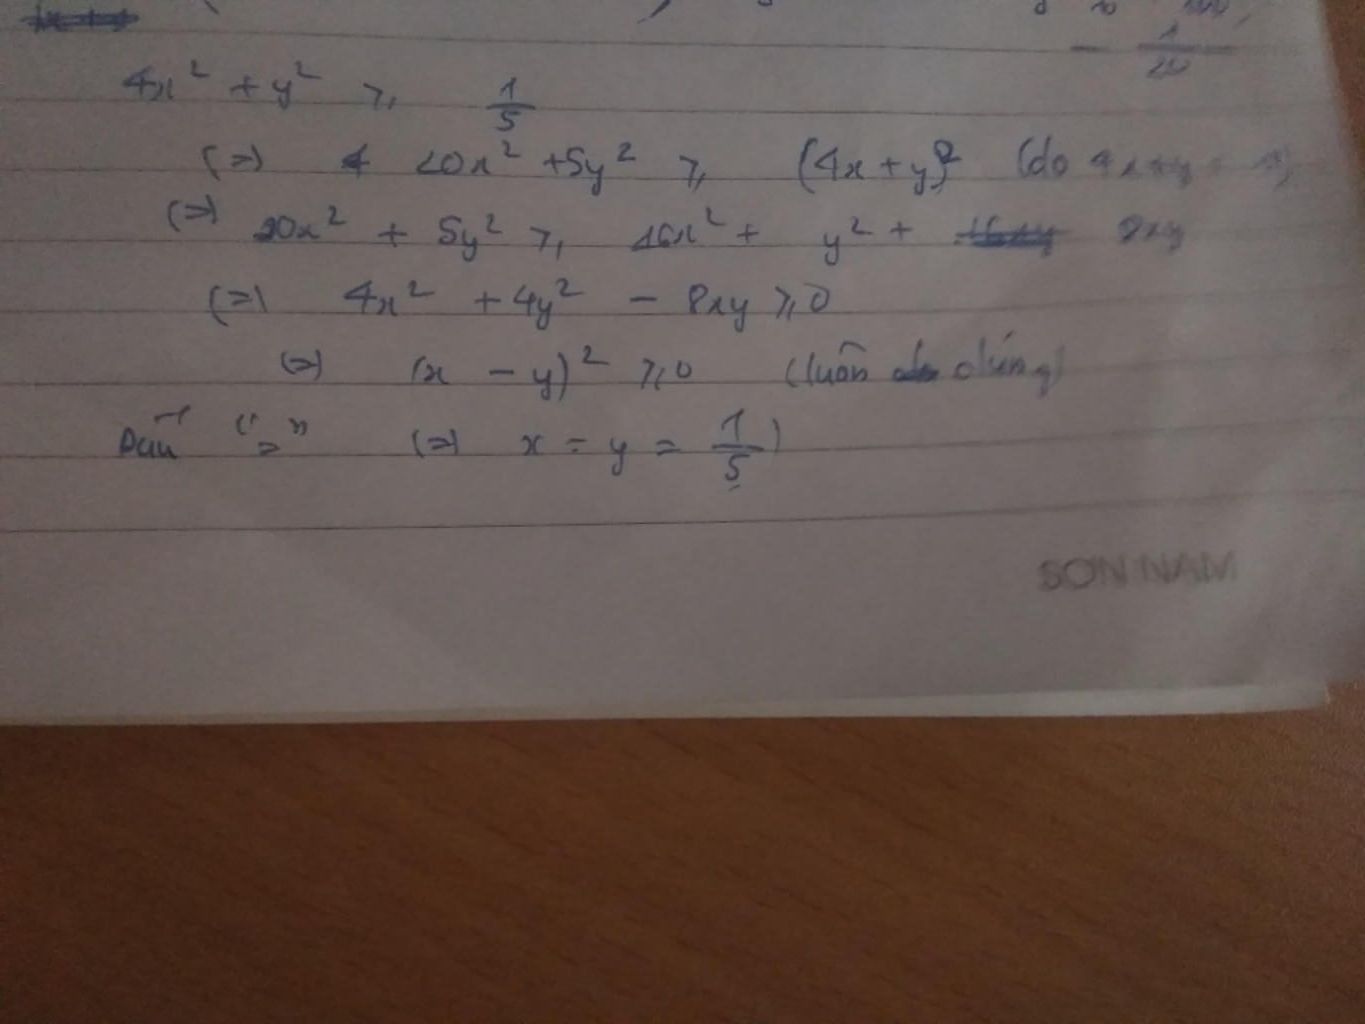 - 1/20
4x² + y² ⩾ 1/5
(=) 20x² + 5y² ⩾ (4x + y)² (do 4x + y = 1)
(=) 20x² + 5y² ⩾ 16x² + y² + 8xy
(=) 4x² + 4y² - 8xy ⩾ 0
(=) (x - y)² ⩾ 0 (luôn đúng)
Dấu "=" (=) x = y = 1/5)
SON NAM